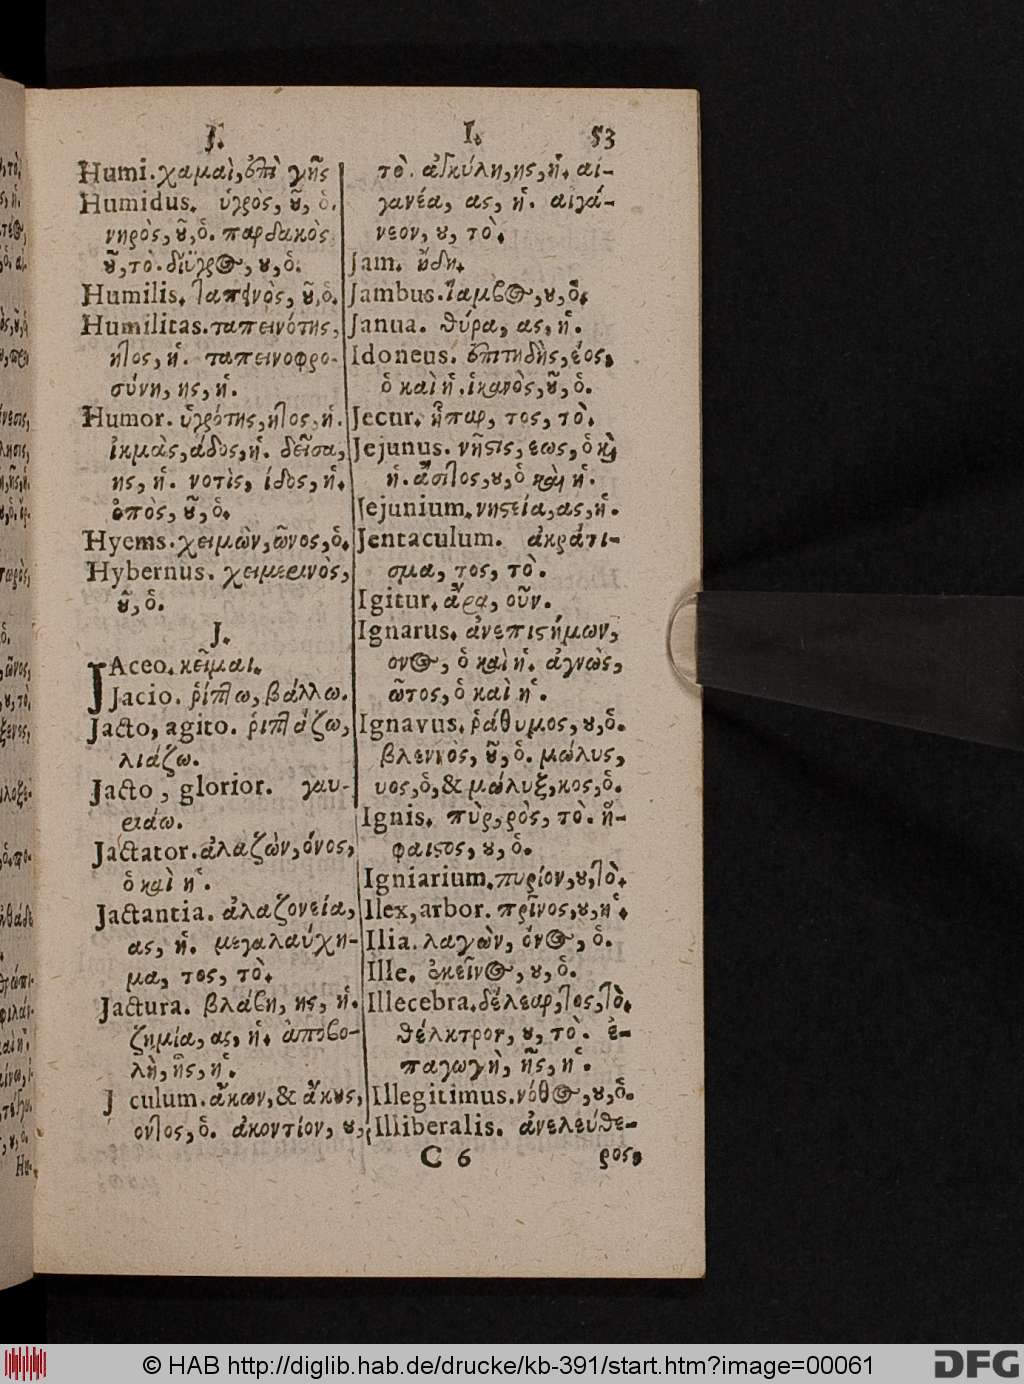 J.
Humi. χαμαὶ, ἐπὶ γῆς
Humidus. ὑγρὸς, ȣ͂, ὁ.
νηρὸς, ȣ͂, ὁ. παρδακὸς
ȣ͂, τὸ. δίϋγρος, ȣ, ὁ.
Humilis. ταπεινὸς, ȣ͂, ὁ.
Humilitas. ταπεινότης,
ητος, ἡ. ταπεινοφρο-
σύνη, ης, ἡ.
Humor. ὑγρότης, ητος, ἡ.
ἰκμὰς, άδος, ἡ. δεῖσα,
ης, ἡ. νοτὶς, ίδος, ἡ.
ὀπὸς, ȣ͂, ὁ.
Hyems. χειμὼν, ῶνος, ὁ.
Hybernus. χειμερινὸς,
ȣ͂, ὁ.
J.
JAceo. κεῖμαι.
Jacio. ῥίπτω, βάλλω.
Jacto, agito. ῥιπτάζω,
λιάζω.
Jacto, glorior. γαυ-
ριάω.
Jactator. ἀλαζὼν, όνος,
ὁ καὶ ἡ.
Jactantia. ἀλαζονεία,
ας, ἡ. μεγαλαύχη-
μα, τος, τὸ.
Jactura. βλάβη, ης, ἡ.
ζημία, ας, ἡ. ἀποβο-
λὴ, ῆς, ἡ.
J culum. ἄκων, & ἄκȣς,
οντος, ὁ. ἀκοντίον, ȣ,
I. 53
τὸ. ἀγκύλη, ης, ἡ. αἰ-
γανέα, ας, ἡ. αἰγά-
νεον, ȣ, τὸ.
Jam. ἤδη.
Jambus. ἴαμβος, ȣ, ὁ.
Janua. θύρα, ας, ἡ.
Idoneus. ἐπιτηδὴς, έος,
ὁ καὶ ἡ. ἱκανὸς, ȣ͂, ὁ.
Jecur. ἧπαρ, τος, τὸ.
Jejunus. νῆστις, εως, ὁ καὶ
ἡ. ἄσιτος, ȣ, ὁ καὶ ἡ.
Jejunium. νηστεία, ας, ἡ.
Jentaculum. ἀκράτι-
σμα, τος, τὸ.
Igitur. ἄρα, οὖν.
Ignarus. ἀνεπιστήμων,
ονος, ὁ καὶ ἡ. ἀγνὼς,
ῶτος, ὁ καὶ ἡ.
Ignavus. ῥάθυμος, ȣ, ὁ.
βλεννὸς, ȣ͂, ὁ. μώλυς,
υος, ὁ, & μώλυξ, κος, ὁ.
Ignis. πὺρ, ρὸς, τὸ. ἥ-
φαιστος, ȣ, ὁ.
Igniarium. πυρίον, ȣ, τὸ.
Ilex, arbor. πρῖνος, ȣ, ἡ.
Ilia. λαγὼν, όνος, ὁ.
Ille. ἐκεῖνος, ȣ, ὁ.
Illecebra. δέλεαρ, τος, τὸ.
θέλκτρον, ȣ, τὸ. ἐ-
παγωγὴ, ῆς, ἡ.
Illegitimus. νόθος, ȣ, ὁ.
Illiberalis. ἀνελεύθε-
C 6 ρος,
© HAB http://diglib.hab.de/drucke/kb-391/start.htm?image=00061
DFG